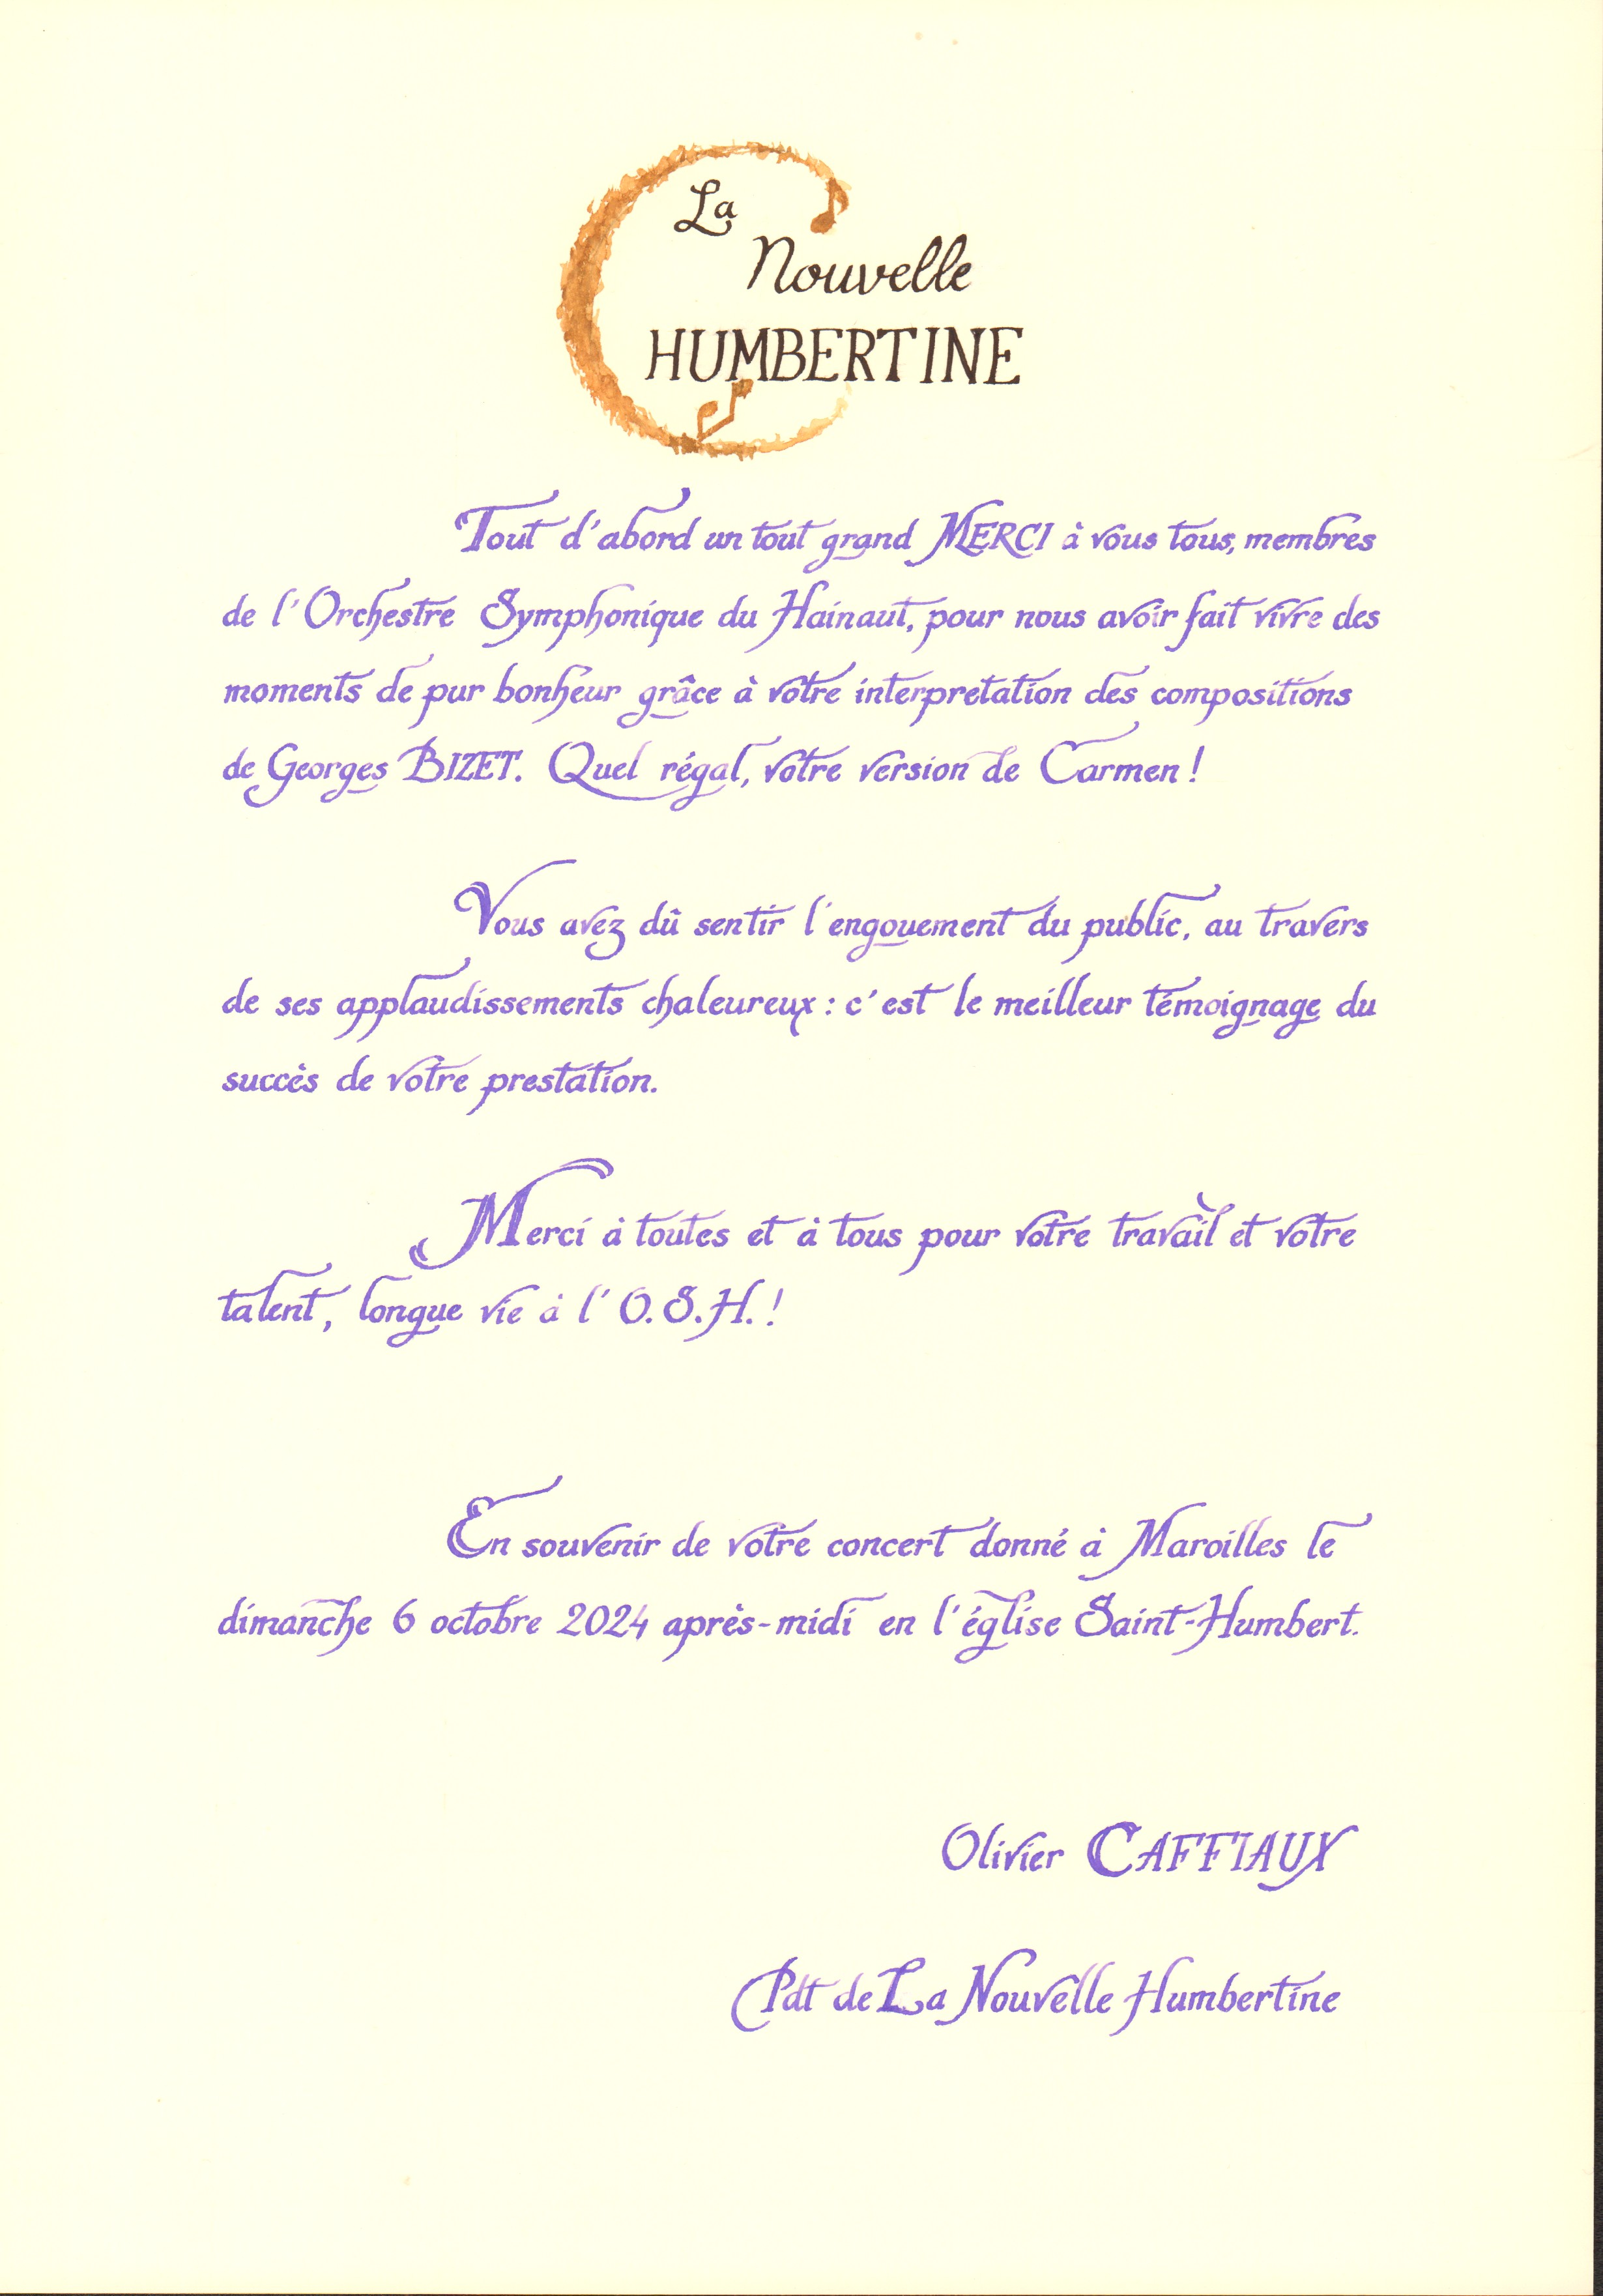 La
Nouvelle
HUMBERTINE
Tout d'abord un tout grand MERCI à vous tous, membres
de l'Orchestre Symphonique du Hainaut, pour nous avoir fait vivre des
moments de pur bonheur grâce à votre interpretation des compositions
de Georges BIZET. Quel régal, votre version de Carmen !
Vous avez dû sentir l'engouement du public, au travers
de ses applaudissements chaleureux : c'est le meilleur témoignage du
succès de votre prestation.
Merci à toutes et à tous pour votre travail et votre
talent, longue vie à l'O.S.H. !
En souvenir de votre concert donné à Maroilles le
dimanche 6 octobre 2024 après-midi en l'église Saint-Humbert.
Olivier CAFFIAUX
Pdt de La Nouvelle Humbertine